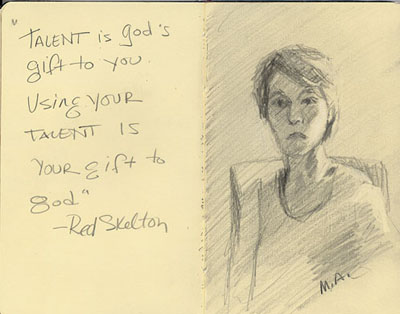 "TALENT is god's
gift to you.
Using YOUR
TALENT IS
YOUR gift to
god"
-Red Skelton
M.A.